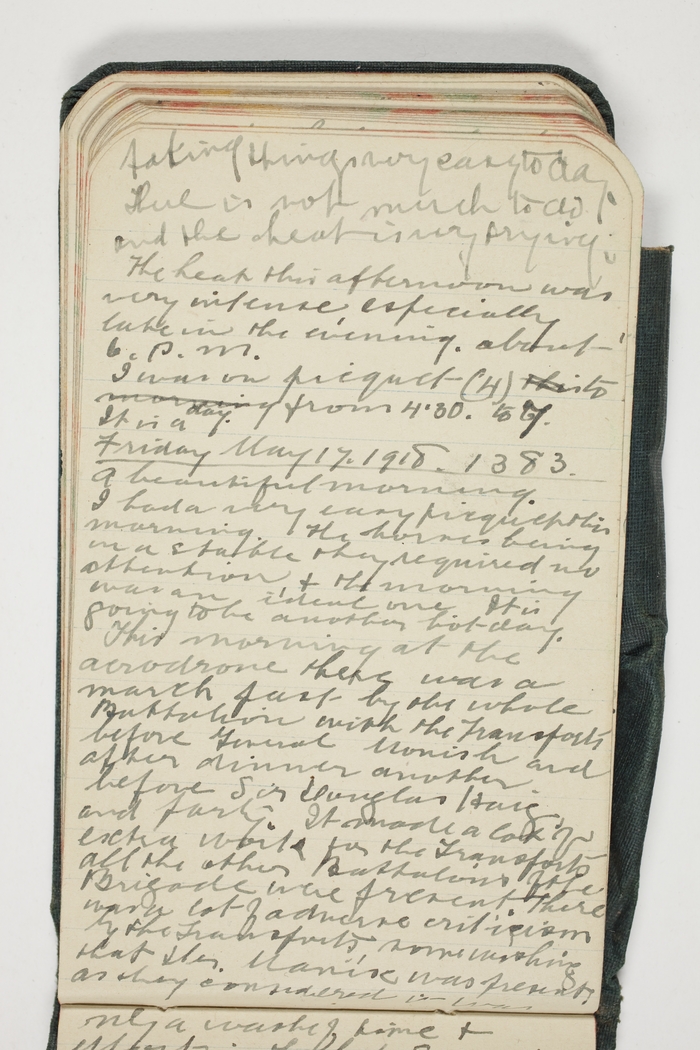 taking things very easy to day.
There is not much to do
and the heat is very trying.
The heat this afternoon was
very intense especially
late in the evening. about
6. p.m.
I was on picquet (4) this to
morning from 4.30. to 7.
It is a day.
Friday May 17. 1918. 1383.
A beautiful morning.
I had a very easy picquet this
morning. The horses being
in a stable they required no
attention, & the morning
was an ideal one. It is
going to be another hot day.
This morning at the
aerodrone there was a
march past by the whole
Battalion with the Transports
before General Monish and
after dinner another
before Sir Douglas Haig
and party. It made a lot of
extra work for the Transports
all the other Battalions of the
Brigade were present. There
was a lot of adverse criticism
by the Transports, some wishing
that was present,
as they considered it was
only a waste of time &